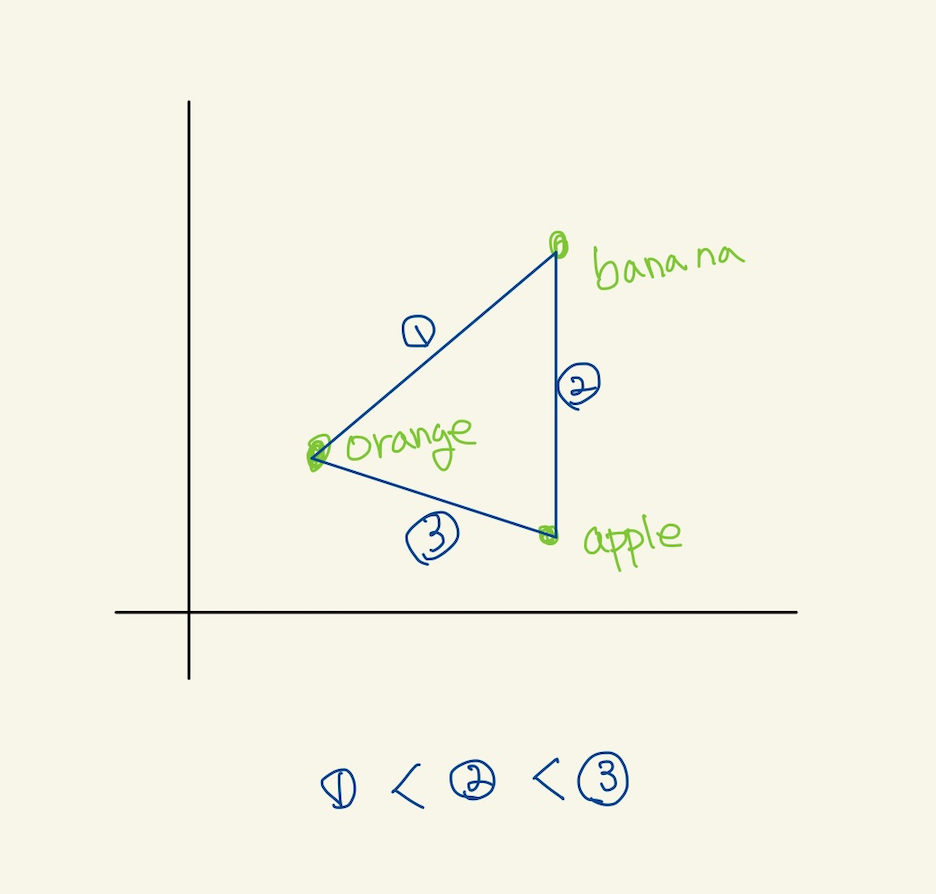 banana
①
②
orange
③
apple
① < ② < ③